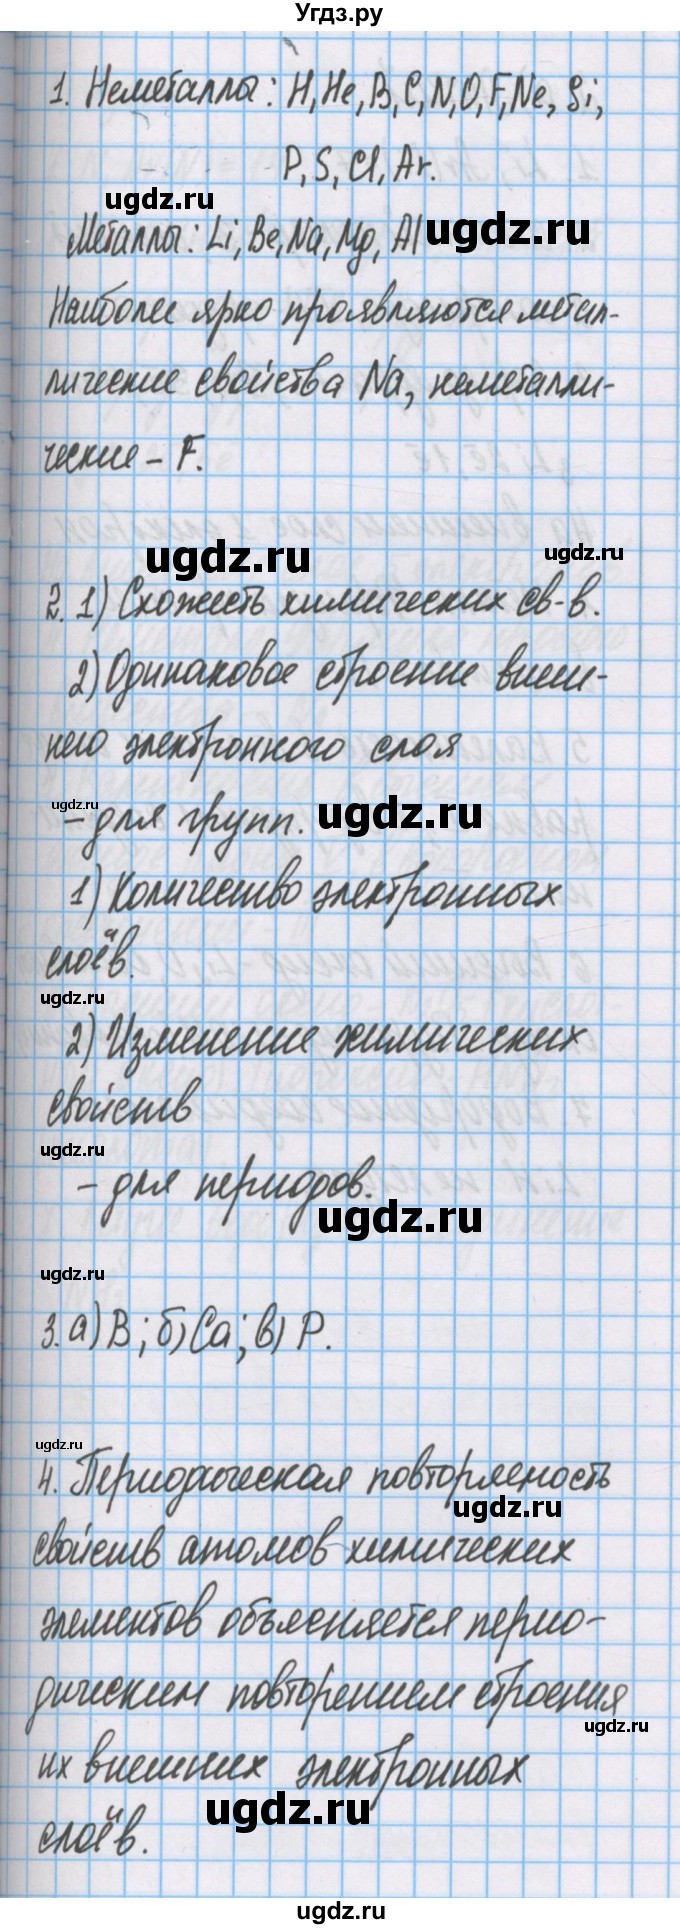 Угдз.ру
1. Неметаллы: H, He, B, C, N, O, F, Ne, Si,
P, S, Cl, Ar.
ugdz.ru
Металлы: Li, Be, Na, Mg, Al
ugdz.ru
Наиболее ярко проявляются метал-
лические свойства Na, неметалли-
ческие – F.
ugdz.ru
ugdz.ru
2. 1) Схожесть химических св-в.
2) Одинаковое строение внеш-
него электронного слоя
ugdz.ru
– для групп.
ugdz.ru
1) Количество электронных
слоёв.
ugdz.ru
2) Изменение химических
свойств
ugdz.ru
– для периодов.
ugdz.ru
ugdz.ru
3. а) B; б) Ca; в) P.
ugdz.ru
4. Периодическая повторяемость
ugdz.ru
свойств атомов химических
элементов объясняется перио-
дическим повторением строения
ugdz.ru
их внешних электронных
ugdz.ru
слоёв.
ugdz.ru